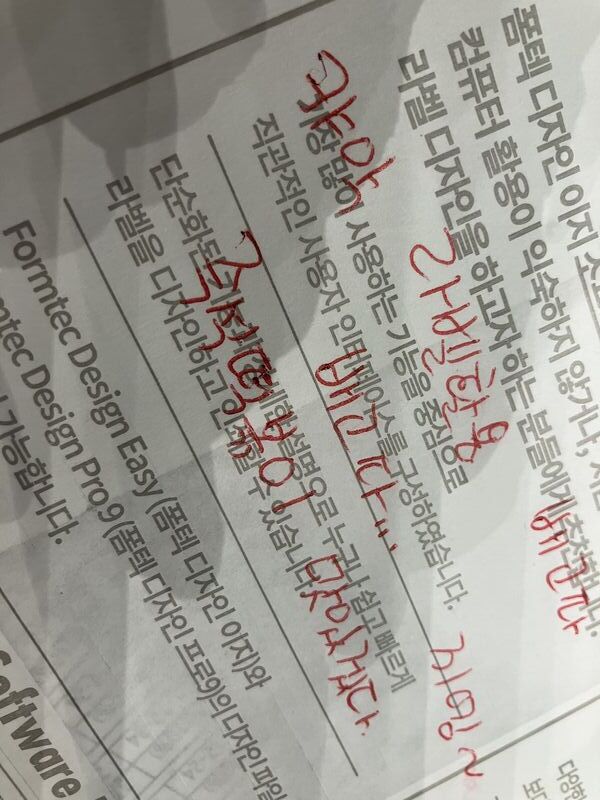 폼텍 디자인 이지
컴퓨터 활용이 익숙하지 않거나,
라벨 디자인을 하고자 하는 분들에게 추천합니다.
배고파
가장 많이 사용하는 기능을 중심으로
직관적인 사용자 인터페이스를 구성하였습니다.
배고파...
지밍~
단순화된 설명으로 누구나 쉽고 빠르게
라벨을 디자인하고 인쇄할 수 있습니다.
즉석떡볶이 맛있겠다.
Formtec Design Easy (폼텍 디자인 이지)와
mtec Design Pro 9 (폼텍 디자인 프로9)의 디자인 파일
가능합니다.
Software